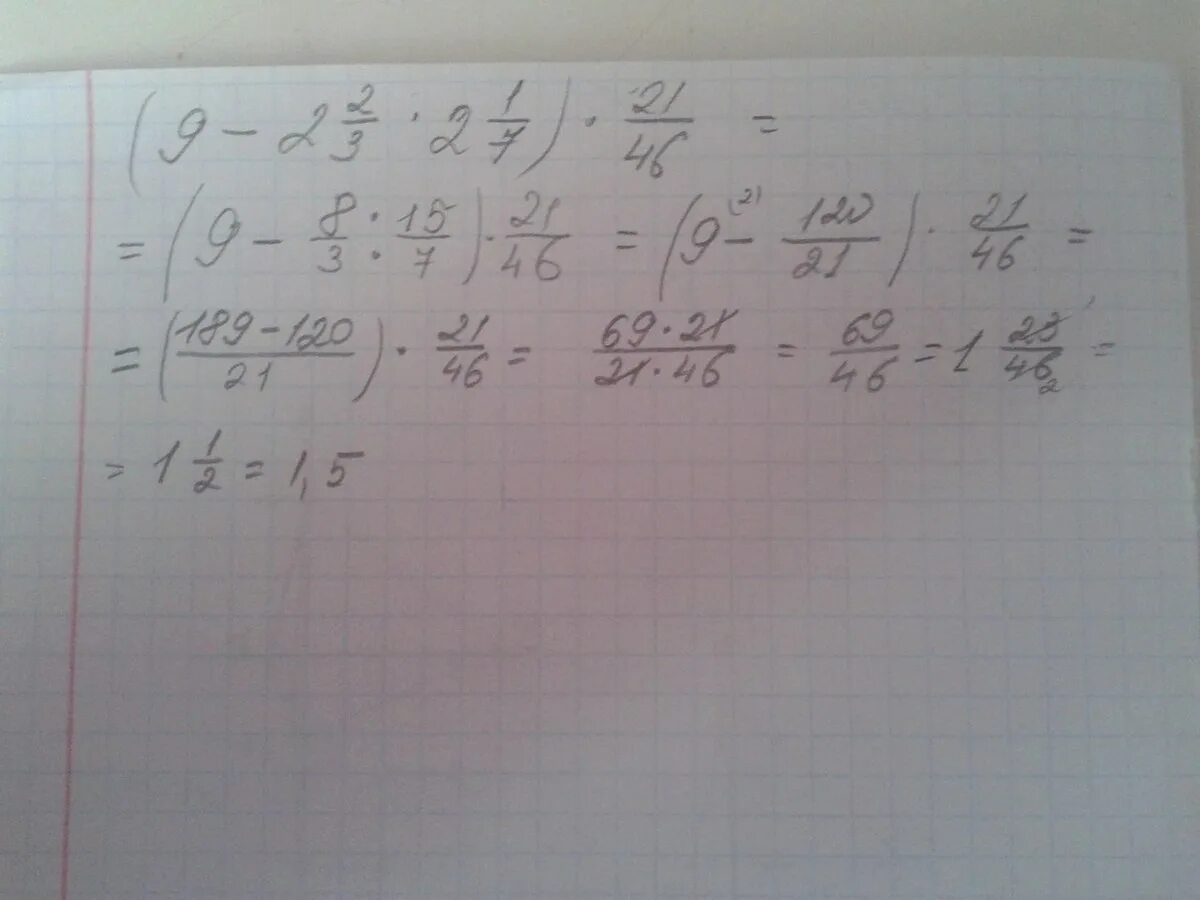 (9 - 2 2/3 · 2 1/7) · 21/46 =
= (9 - 8/3 · 15/7) · 21/46 = (9 - 120/21) · 21/46 =
= (189 - 120/21) · 21/46 = 69 · 21/21 · 46 = 69/46 = 1 23/46 =
= 1 1/2 = 1,5